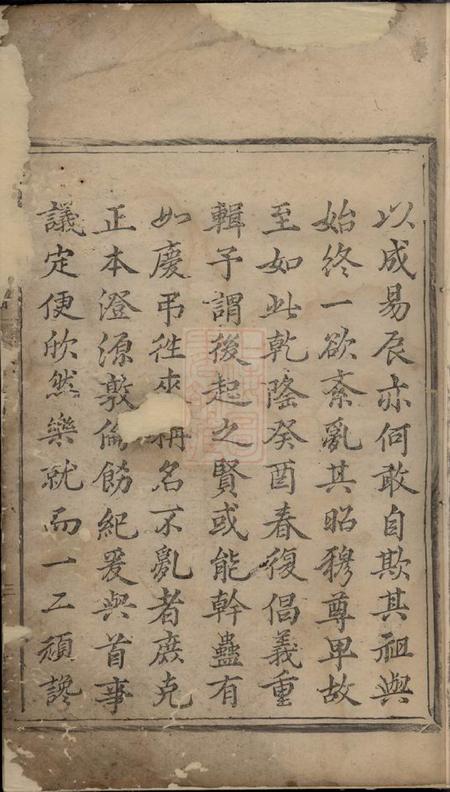 以成易辰亦何敢自欺其祖與
始終一欲紊亂其昭穆尊卑故
至如此乾隆癸酉春復倡義重
輯予謂後起之賢或能幹蠱有
如慶弔徃来稱名不亂者庶克
正本澄源敦倫飭紀爰與首事
議定便欣然樂就而一二頑讒